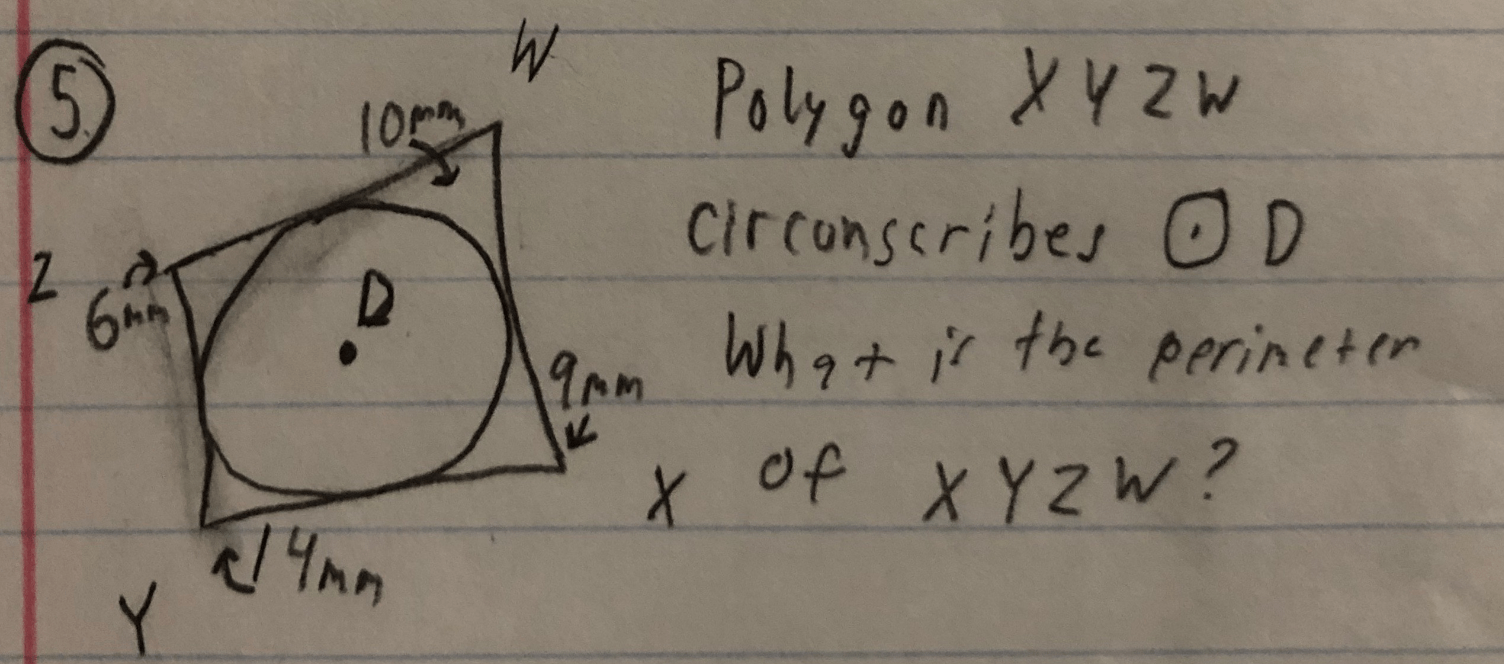 5.
W
10mm
Z
6mm
D
9mm
X
14mm
Y
Polygon XYZW
circonscribes ⊙ D
What is the perimeter
of XYZW?